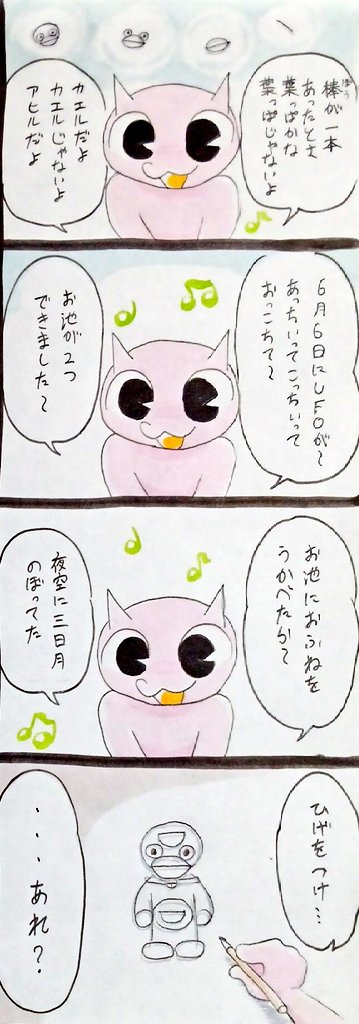 棒が一本
あったとさ
葉っぱかな
葉っぱじゃないよ
カエルだよ
カエルじゃないよ
アヒルだよ
6月6日にUFOが〜
あっちいってこっちいって
おっこちて〜
お池が2つ
できました〜
お池におふねを
うかべたか〜
夜空に三日月
のぼってた
ひげをつけ…
・・・あれ？